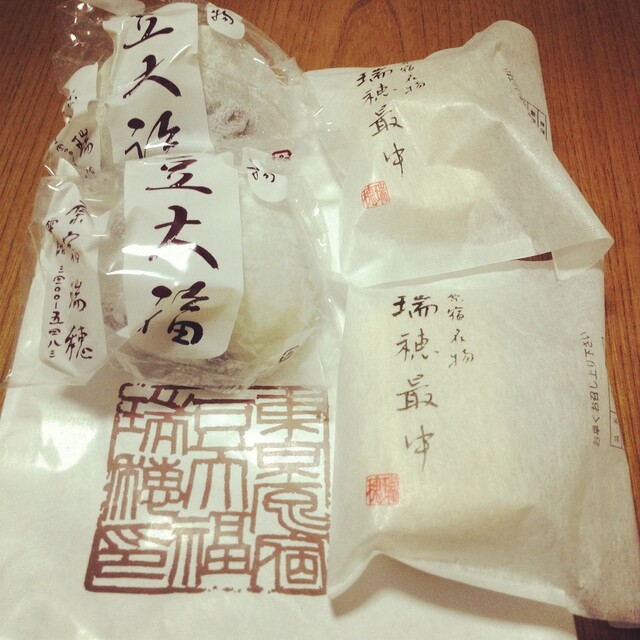 物
豆大福
物
豆大福
原宿 瑞穂
三四〇〇-五四八三
原宿名物
瑞穂最中
原宿名物
瑞穂最中
東京原宿
豆大福
瑞穂印